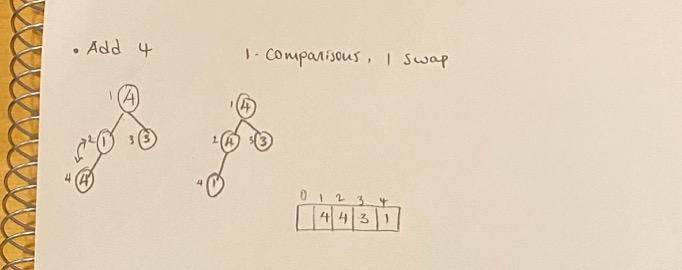 • Add 4
1 - comparisons, 1 swap
1 4
2 1 3 3
4 4
1 4
2 4 3 3
4 1
0 1 2 3 4
4 4 3 1